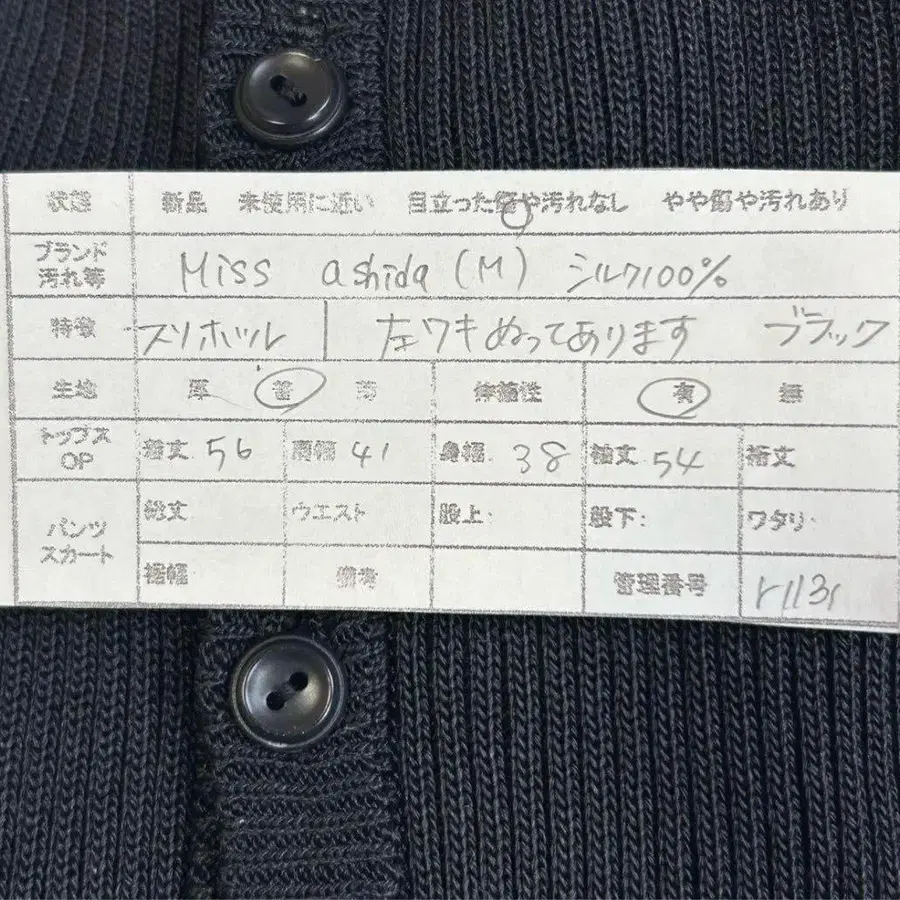 状態 新品 未使用に近い 目立った傷や汚れなし やや傷や汚れあり
ブランド
汚れ等 Miss ashida (M) シルク100%
特徴 左ワキぬってあります ブラック
生地 厚 普 薄 伸縮性 有 無
トップス
OP 着丈 56 肩幅 41 身幅 38 袖丈 54 裄丈
パンツ
スカート 総丈 ウエスト 股上: 股下: ワタリ:
裾幅 備考 管理番号